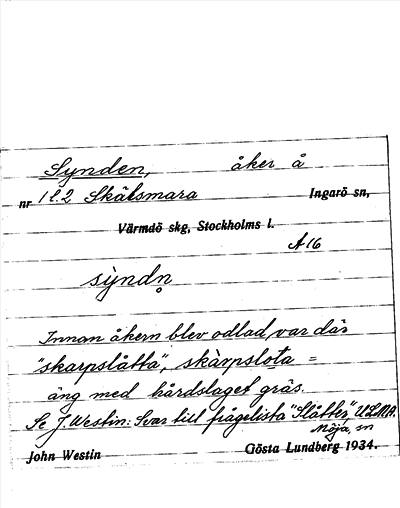 Synden, åker å
nr 1 l. 2 Skälsmara Ingarö sn,
Värmdö skg, Stockholms l.
A 16
sỳndn̥
Innan åkern blev odlad, var där
"skarpslåtta", skàrpslo̱ta =
äng med hårdslaget gräs.
Se J. Westin: Svar till frågelista "Slåtter", ULMA.
Möja, sn
John Westin Gösta Lundberg 1934.